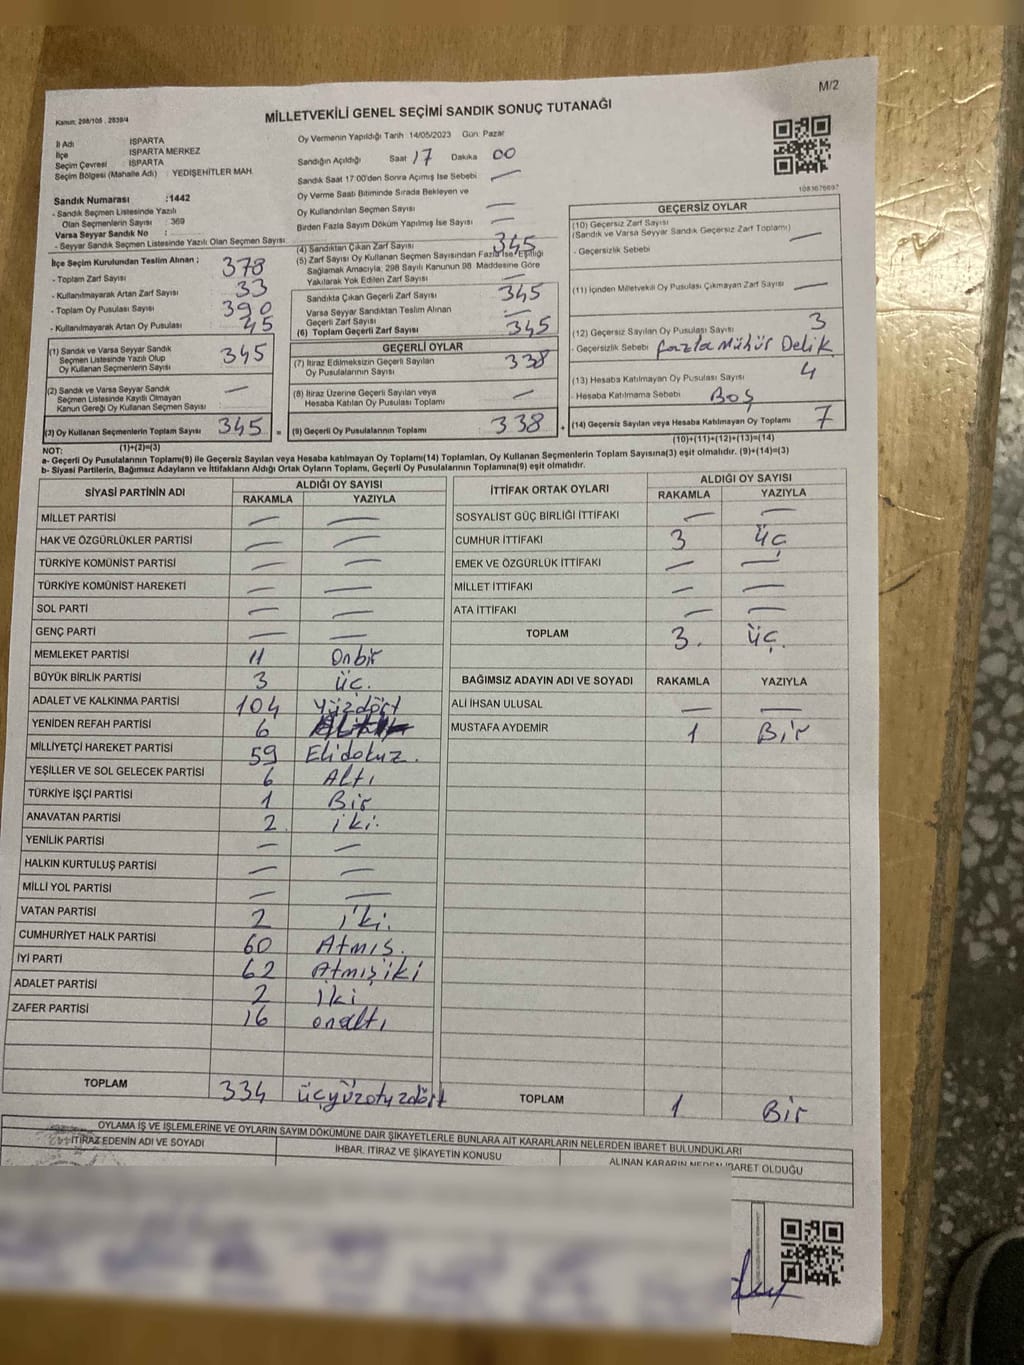 M/2
Kanun: 298/105 , 2839/4
MİLLETVEKİLİ GENEL SEÇİMİ SANDIK SONUÇ TUTANAĞI
İl Adı ISPARTA
İlçe ISPARTA MERKEZ
Seçim Çevresi ISPARTA
Seçim Bölgesi (Mahalle Adı) : YEDİŞEHİTLER MAH.
Sandık Numarası :1442
- Sandık Seçmen Listesinde Yazılı
Olan Seçmenlerin Sayısı : 369
Varsa Seyyar Sandık No :
- Seyyar Sandık Seçmen Listesinde Yazılı Olan Seçmen Sayısı
Oy Vermenin Yapıldığı Tarih :14/05/2023 Gün: Pazar
Sandığın Açıldığı Saat 17 Dakika 00
Sandık Saat 17:00'den Sonra Açılmış İse Sebebi —
Oy Verme Saati Bitiminde Sırada Bekleyen ve
Oy Kullandırılan Seçmen Sayısı —
Birden Fazla Sayım Döküm Yapılmış İse Sayısı —
1083676697
İlçe Seçim Kurulundan Teslim Alınan ;
- Toplam Zarf Sayısı 378
- Kullanılmayarak Artan Zarf Sayısı 33
- Toplam Oy Pusulası Sayısı 390
- Kullanılmayarak Artan Oy Pusulası 45
(1) Sandık ve Varsa Seyyar Sandık
Seçmen Listesinde Yazılı Olup
Oy Kullanan Seçmenlerin Sayısı 345
(2) Sandık ve Varsa Seyyar Sandık
Seçmen Listesinde Kayıtlı Olmayan
Kanun Gereği Oy Kullanan Seçmen Sayısı —
(3) Oy Kullanan Seçmenlerin Toplam Sayısı 345 =
(1)+(2)=(3)
(4) Sandıktan Çıkan Zarf Sayısı 345
(5) Zarf Sayısı Oy Kullanan Seçmen Sayısından Fazla İse, Eşitliği
Sağlamak Amacıyla, 298 Sayılı Kanunun 98. Maddesine Göre
Yakılarak Yok Edilen Zarf Sayısı —
Sandıkta Çıkan Geçerli Zarf Sayısı 345
Varsa Seyyar Sandıktan Teslim Alınan
Geçerli Zarf Sayısı —
(6) Toplam Geçerli Zarf Sayısı 345
GEÇERLİ OYLAR
(7) İtiraz Edilmeksizin Geçerli Sayılan
Oy Pusulalarının Sayısı 338
(8) İtiraz Üzerine Geçerli Sayılan veya
Hesaba Katılan Oy Pusulası Toplamı —
(9) Geçerli Oy Pusulalarının Toplamı 338 +
GEÇERSİZ OYLAR
(10) Geçersiz Zarf Sayısı
(Sandık ve Varsa Seyyar Sandık Geçersiz Zarf Toplamı) —
- Geçersizlik Sebebi
(11) İçinden Milletvekili Oy Pusulası Çıkmayan Zarf Sayısı —
(12) Geçersiz Sayılan Oy Pusulası Sayısı 3
- Geçersizlik Sebebi fazla Mühür Delik
(13) Hesaba Katılmayan Oy Pusulası Sayısı 4
- Hesaba Katılmama Sebebi Boş
(14) Geçersiz Sayılan veya Hesaba Katılmayan Oy Toplamı 7
(10)+(11)+(12)+(13)=(14)
NOT:
a- Geçerli Oy Pusulalarının Toplamı(9) ile Geçersiz Sayılan veya Hesaba Katılmayan Oy Toplamı(14) Toplamları, Oy Kullanan Seçmenlerin Toplam Sayısına(3) eşit olmalıdır. (9)+(14)=(3)
b- Siyasi Partilerin, Bağımsız Adayların ve İttifakların Aldığı Ortak Oyların Toplamı, Geçerli Oy Pusulalarının Toplamına(9) eşit olmalıdır.
SİYASİ PARTİNİN ADI ALDIĞI OY SAYISI
RAKAMLA YAZIYLA
MİLLET PARTİSİ — —
HAK VE ÖZGÜRLÜKLER PARTİSİ — —
TÜRKİYE KOMÜNİST PARTİSİ — —
TÜRKİYE KOMÜNİST HAREKETİ — —
SOL PARTİ — —
GENÇ PARTİ — —
MEMLEKET PARTİSİ 11 Onbir
BÜYÜK BİRLİK PARTİSİ 3 üç.
ADALET VE KALKINMA PARTİSİ 104 Yüzdört
YENİDEN REFAH PARTİSİ 6
MİLLİYETÇİ HAREKET PARTİSİ 59 Elidokuz.
YEŞİLLER VE SOL GELECEK PARTİSİ 6 Altı
TÜRKİYE İŞÇİ PARTİSİ 1 Bir
ANAVATAN PARTİSİ 2. iki.
YENİLİK PARTİSİ — —
HALKIN KURTULUŞ PARTİSİ — —
MİLLİ YOL PARTİSİ — —
VATAN PARTİSİ 2 iki.
CUMHURİYET HALK PARTİSİ 60 Atmış.
İYİ PARTİ 62 Atmışiki
ADALET PARTİSİ 2 iki
ZAFER PARTİSİ 16 onaltı
TOPLAM 334 üçyüzotuzdört
İTTİFAK ORTAK OYLARI ALDIĞI OY SAYISI
RAKAMLA YAZIYLA
SOSYALİST GÜÇ BİRLİĞİ İTTİFAKI — —
CUMHUR İTTİFAKI 3 üç
EMEK VE ÖZGÜRLÜK İTTİFAKI — —
MİLLET İTTİFAKI — —
ATA İTTİFAKI — —
TOPLAM 3. üç.
BAĞIMSIZ ADAYIN ADI VE SOYADI RAKAMLA YAZIYLA
ALİ İHSAN ULUSAL — —
MUSTAFA AYDEMİR 1 Bir
TOPLAM 1 Bir
OYLAMA İŞ VE İŞLEMLERİNE VE OYLARIN SAYIM DÖKÜMÜNE DAİR ŞİKAYETLERLE BUNLARA AİT KARARLARIN NELERDEN İBARET BULUNDUKLARI
İTİRAZ EDENİN ADI VE SOYADI İHBAR, İTİRAZ VE ŞİKAYETİN KONUSU ALINAN KARARIN NEDEN İBARET OLDUĞU